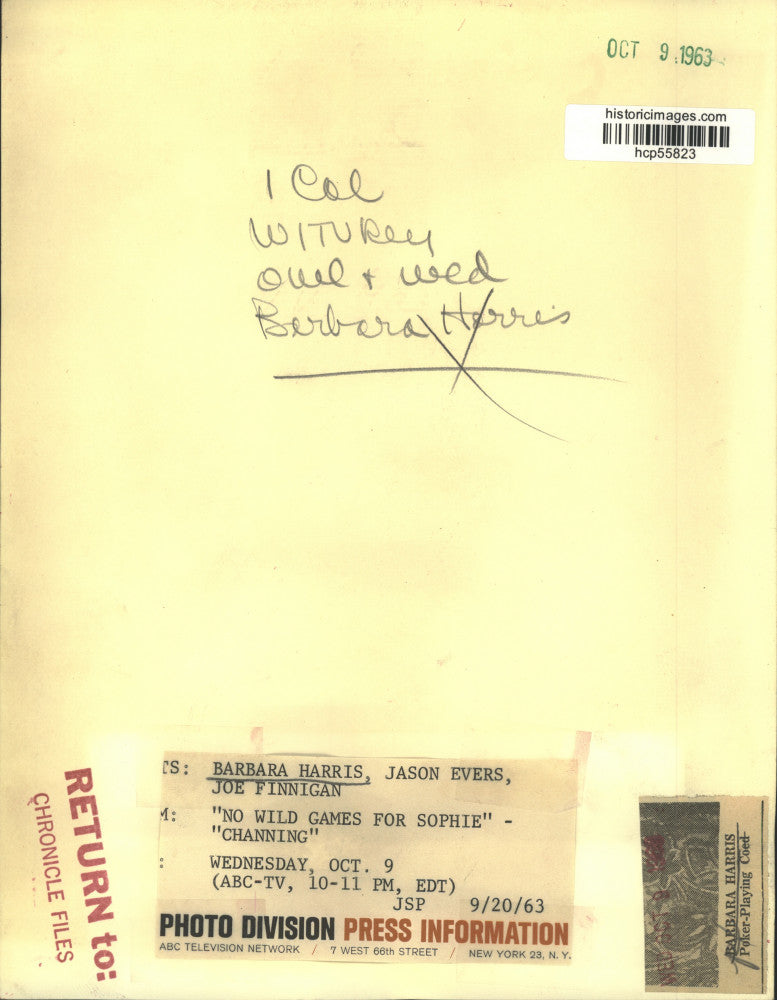 OCT 9 1963
historicimages.com
hcp55823
1 Col
Barbara Harris
TS: BARBARA HARRIS, JASON EVERS,
JOE FINNIGAN
M: "NO WILD GAMES FOR SOPHIE" -
"CHANNING"
: WEDNESDAY, OCT. 9
(ABC-TV, 10-11 PM, EDT)
JSP 9/20/63
PHOTO DIVISION PRESS INFORMATION
ABC TELEVISION NETWORK / 7 WEST 66th STREET / NEW YORK 23, N.Y.
RETURN to:
CHRONICLE FILES
BARBARA HARRIS
Poker-Playing Coed